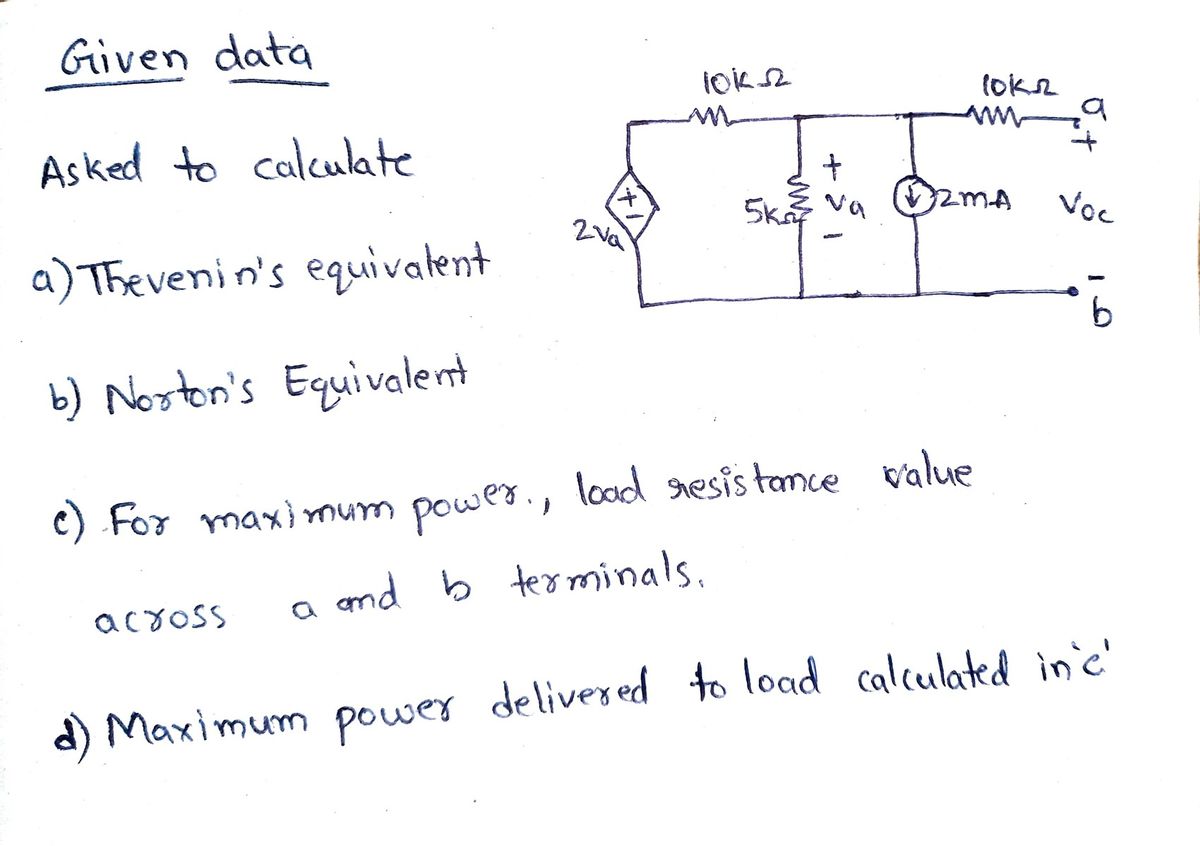 Given data
10kΩ
10kΩ
a
+
Asked to calculate
+
+
-
2Va
5kΩ
Va
-
2mA
Voc
a) Thevenin's equivalent
-
b
b) Norton's Equivalent
c) For maximum power., load resistance value
across a and b terminals.
d) Maximum power delivered to load calculated in 'c'